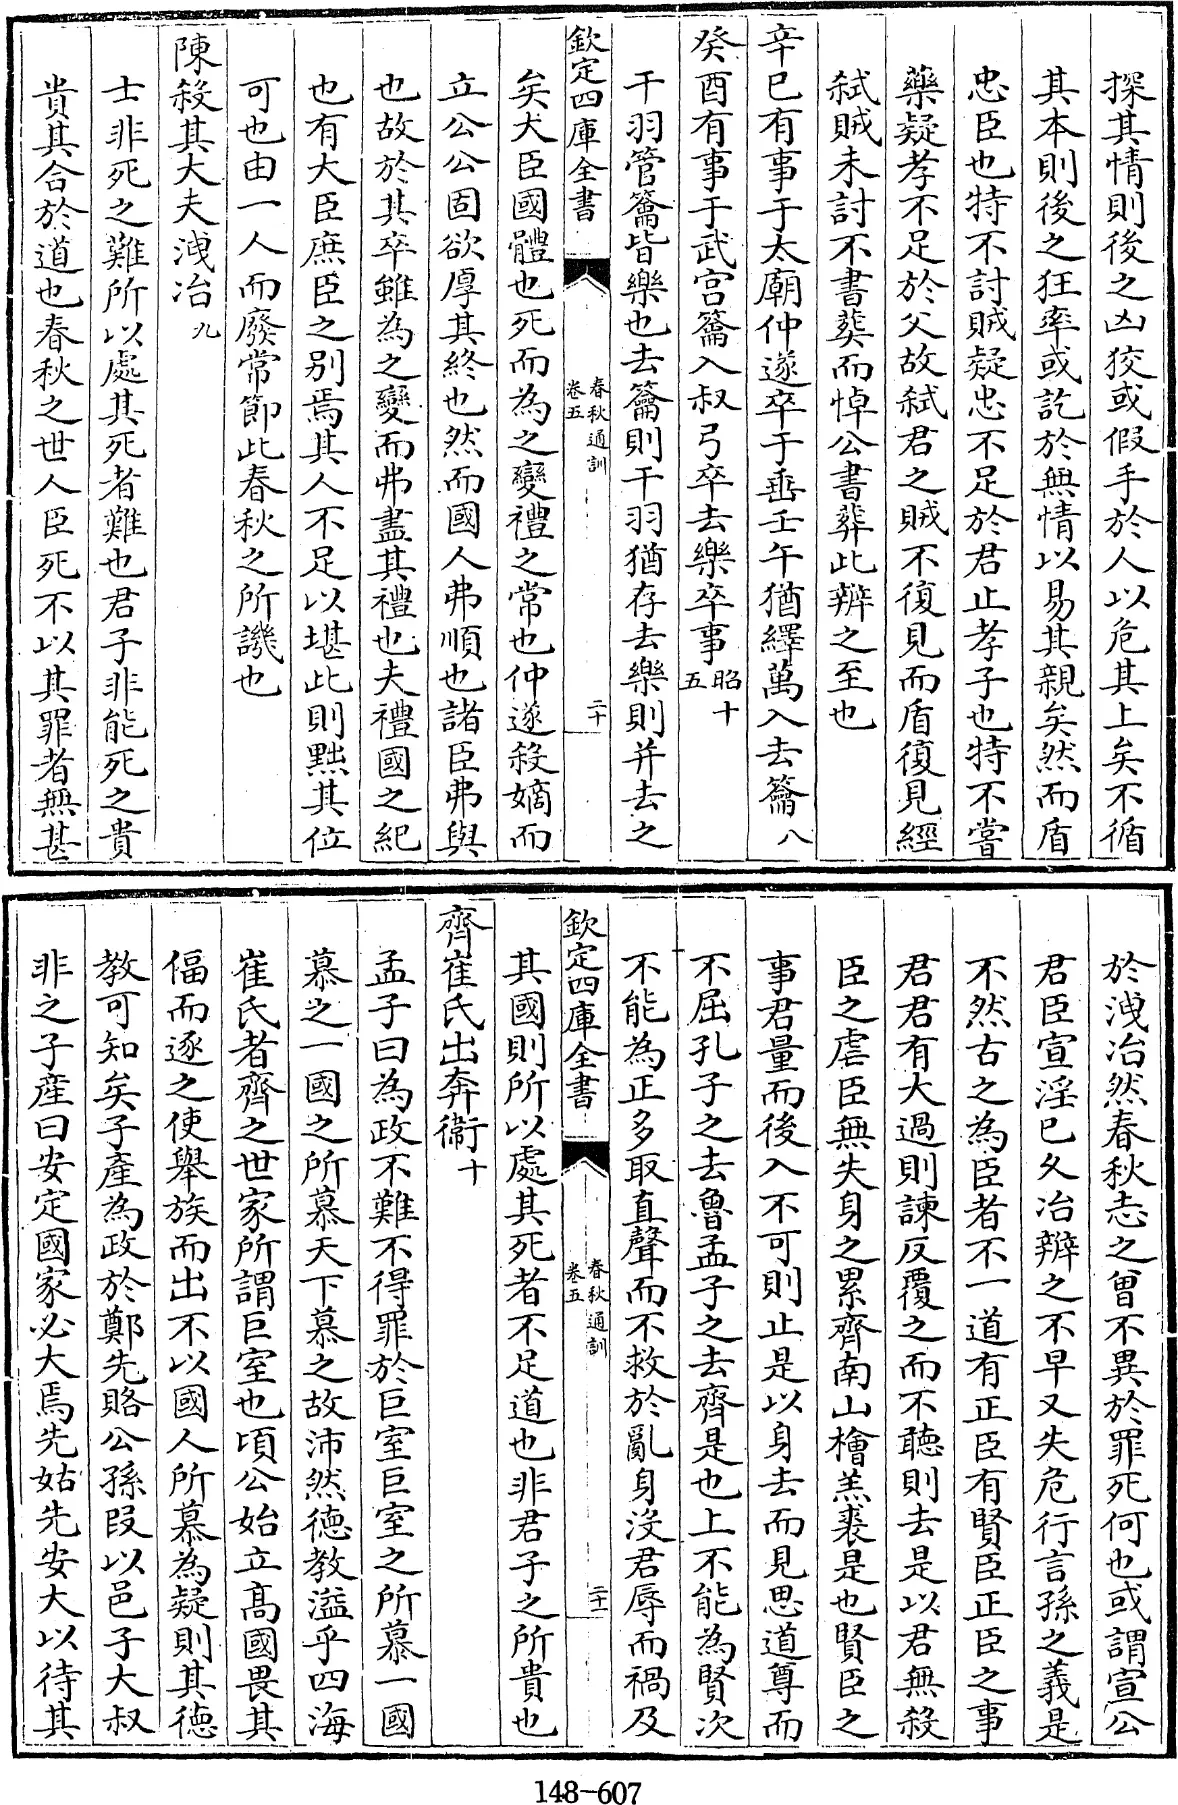 探其情則後之凶狡或假手於人以危其上矣不循
其本則後之狂率或訖於無情以易其親矣然而盾
忠臣也特不討賊疑忠不足於君止孝子也特不嘗
藥疑孝不足於父故弑君之賊不復見而盾復見經
弑賊未討不書葬而悼公書葬此辨之至也
辛巳有事于太廟仲遂卒于垂壬午猶繹萬入去籥八
癸酉有事于武宮籥入叔弓卒去樂卒事昭十五
干羽管籥皆樂也去籥則干羽猶存去樂則并去之
欽定四庫全書 春秋通訓卷五 二十
矣大臣國體也死而為之變禮之常也仲遂殺嫡而
立公公固欲厚其終也然而國人弗順也諸臣弗與
也故於其卒雖為之變而弗盡其禮也夫禮國之紀
也有大臣庶臣之別焉其人不足以堪此則黜其位
可也由一人而廢常節此春秋之所譏也
陳殺其大夫洩冶九
士非死之難所以處其死者難也君子非能死之貴
貴其合於道也春秋之世人臣死不以其罪者無甚
於洩冶然春秋志之曾不異於罪死何也或謂宣公
君臣宣淫已久冶辨之不早又失危行言孫之義是
不然古之為臣者不一道有正臣有賢臣正臣之事
君君有大過則諫反覆之而不聽則去是以君無殺
臣之虐臣無失身之累齊南山檜羔裘是也賢臣之
事君量而後入不可則止是以身去而見思道尊而
不屈孔子之去魯孟子之去齊是也上不能為賢次
不能為正多取直聲而不救於亂身沒君辱而禍及
欽定四庫全書 春秋通訓卷五 二十一
其國則所以處其死者不足道也非君子之所貴也
齊崔氏出奔衛十
孟子曰為政不難不得罪於巨室巨室之所慕一國
慕之一國之所慕天下慕之故沛然德教溢乎四海
崔氏者齊之世家所謂巨室也頃公始立高國畏其
偪而逐之使舉族而出不以國人所慕為疑則其德
教可知矣子產為政於鄭先賂公孫段以邑子大叔
非之子產曰安定國家必大焉先姑先安大以待其
148-607